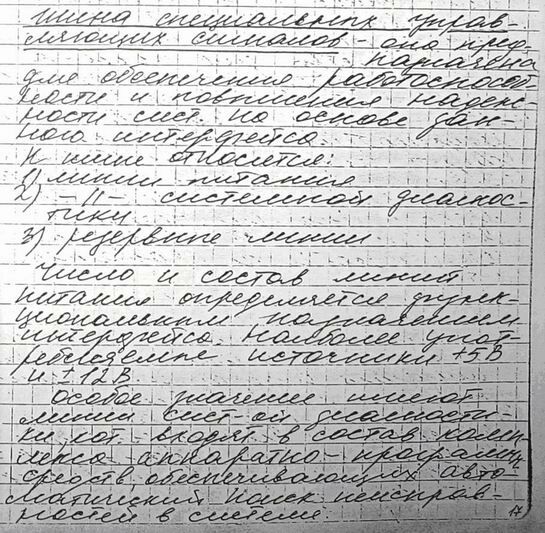 шина специальных управ-
ляющих сигналов - она пред-
назначена
для обеспечения работоспособ-
ности и повышения надеж-
ности сист. на основе дан-
ного интерфейса.
К шине относятся:
1) линии питания
2) -||- системной диагнос-
тики
3) резервные линии
Число и состав линий
питания определяется функ-
циональным назначением
интерфейса. Наиболее упот-
ребляемые источники +5В
и ±12В
Особое значение имеют
линии сист-ой диагности-
ки, кот. входят в состав комп-
лекса аппаратно-программ.
средств, обеспечивающих авто-
матический поиск неисправ-
ностей в системе.
17